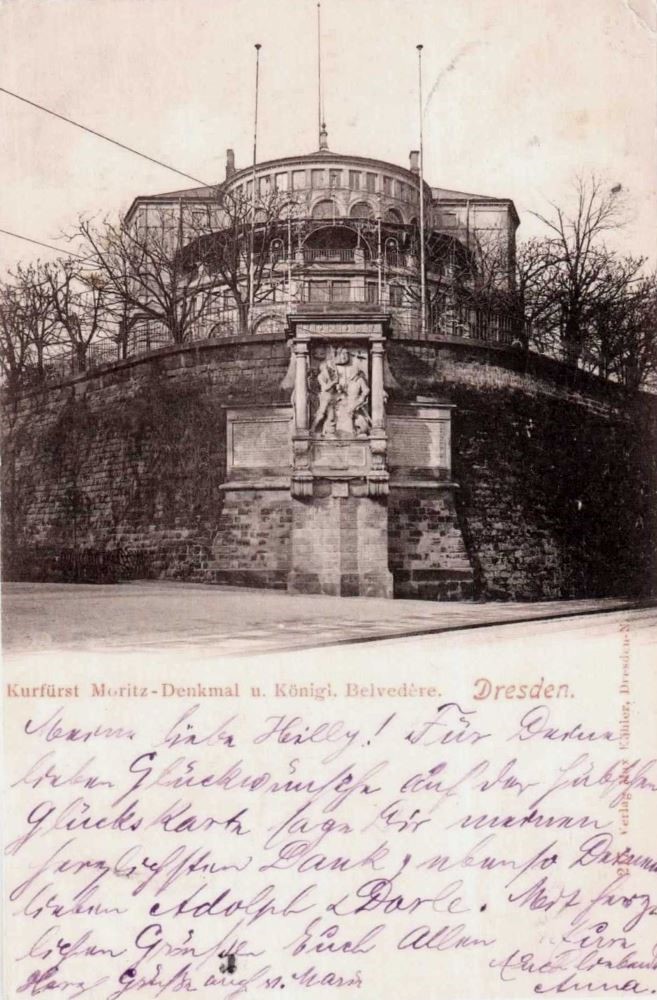 Kurfürst Moritz-Denkmal u. Königl. Belvedère. Dresden.
Meine liebe Hilly! Für Deine
lieben Glückwünsche auf der hübschen
Glückskarte sage Dir meinen
herzlichsten Dank, ebenso Deinen
lieben Adolph & Dorle. Mit herz-
lichen Grüßen Euch Allen Eure
Euch liebende
Herz. Grüße auch v. Marie
Anna.
Verlag Max Köhler, Dresden-N.